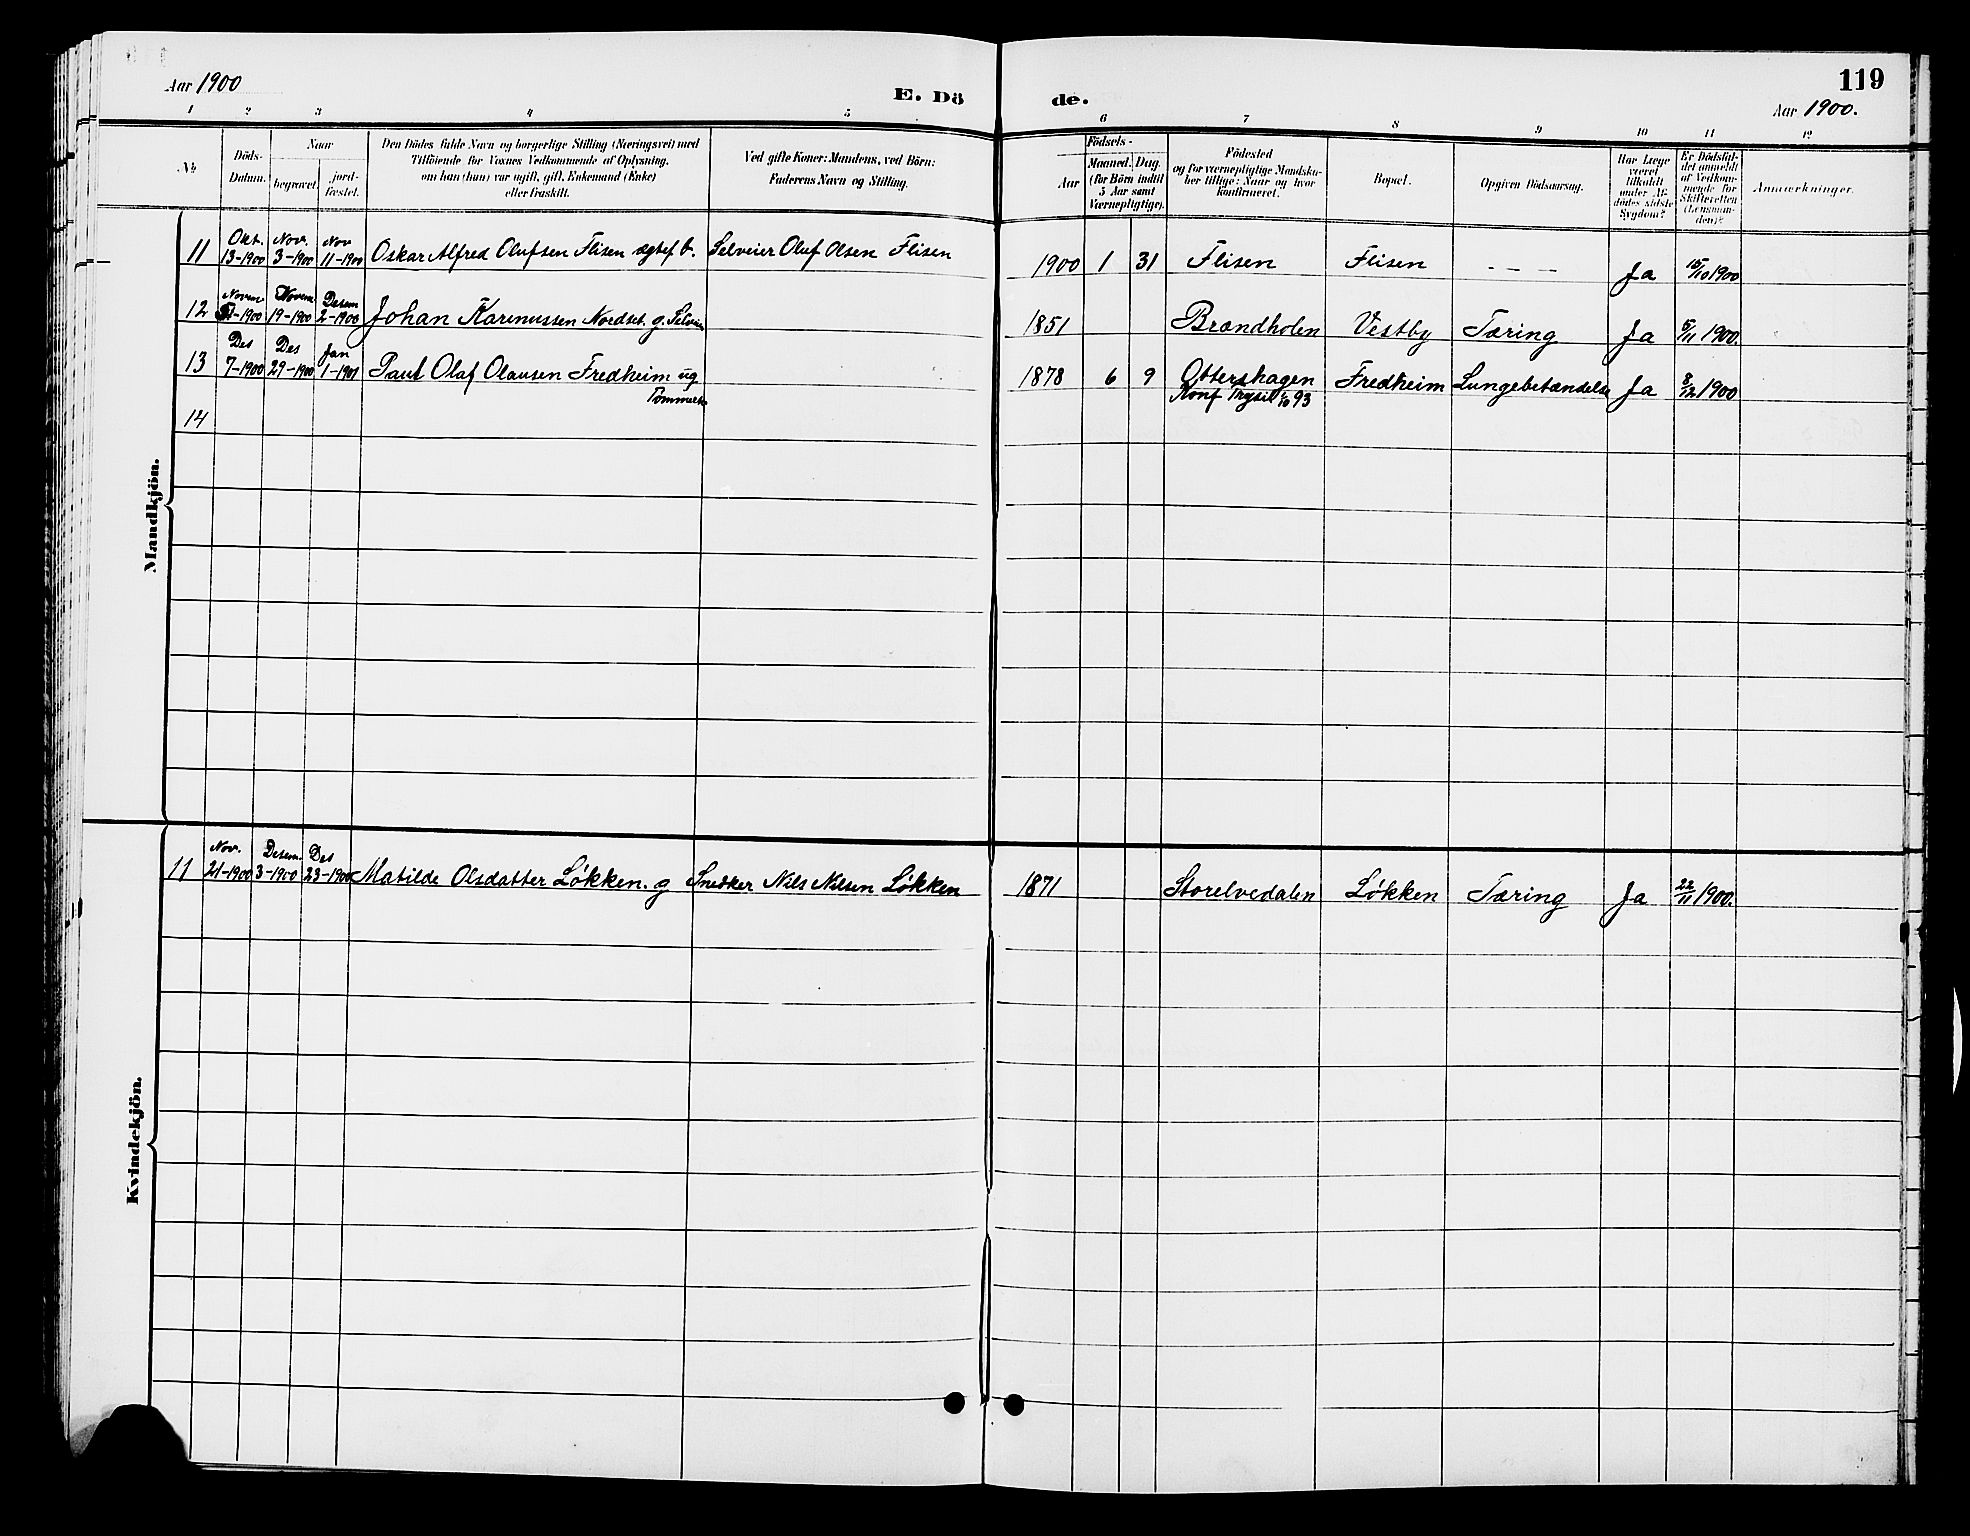 Aar 1900
E. Dö
de.
119
Aar 1900.
1 2 3 4 5 6 7 8 9 10 11 12
No.
Döds-
Datum.
Naar
begravet.
jord-
fæstet.
Den Dödes fulde Navn og borgerlige Stilling (Næringsvei) med
Tilföiende for Voxnes Vedkommende af Oplysning,
om han (hun) var ugift, gift, Enkemand (Enke)
eller fraskilt.
Ved gifte Koner: Mandens, ved Börn:
Faderens Navn og Stilling.
Födsels-
Aar
Maaned.
Dag.
(for Börn indtil
5 Aar samt
Værnepligtige).
Födested
og for værnepligtige Mandska-
ber tillige: Naar og hvor
konfirmeret.
Bopæl.
Opgiven Dödsaarsag.
Har Læge
været
tilkaldt
under Af-
dödes sidste
Sygdom?
Er Dödsfal-
det anmeldt
af Vedkom-
mende for
Skifteretten
(Lensman-
den)?
Anmærkninger.
Mandkjön.
11 Okt. 13-1900 Nov. 3-1900 Nov 11-1900 Oskar Alfred Olufsen Flisen ægtef b. Selveier Oluf Olsen Flisen 1900 1 31 Flisen Flisen - - - Ja 15/10 1900
12 Novem -1900 Novem 19-1900 Desem 2-1900 Johan Karenussen Nordset. g. Selveier 1851 Brændholen Vestby Tæring Ja 5/11 1900.
13 Des 7-1900 Des 29-1900 Jan 1-1901 Paul Olaf Olausen Fredheim ug 1878 6 9 Ottershagen Fredheim Lungebetændelse Ja 8/12 1900
Tømmerh Konf Trysil 93
14
Kvindekjön.
11 Nov. 21-1900 Desem. 3-1900 Des 23-1900 Matilde Olsdatter Løkken. g Snedker Nils Nilsen Løkken 1871 Storelvedalen Løkken Tæring Ja 22/11 1900.